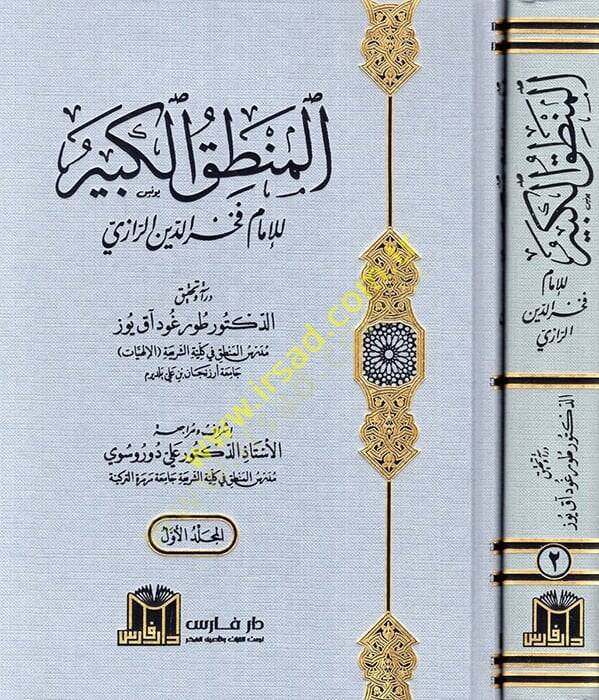 المنطق الكبير
يونس
للإمام فخر الدين الرازي
دراسة وتحقيق
الدكتور طورغود آق يوز
مدرس المنطق في كلية الشريعة (الإلهيات)
جامعة أرزنجان بن علي يلديرم
إشراف ومراجعة
الأستاذ الدكتور علي دوروسوي
مدرس المنطق في كلية الشريعة جامعة مرمرة التركية
المجلد الأول
دار فارس
دار فارس
لبعث التراث وتأصيل الفكر
www.irsad.com.tr
المنطق الكبير
يونس
للإمام
فخر الدين
الرازي
دراسة وتحقيق
الدكتور طورغود آق يوز
٢
دار فارس